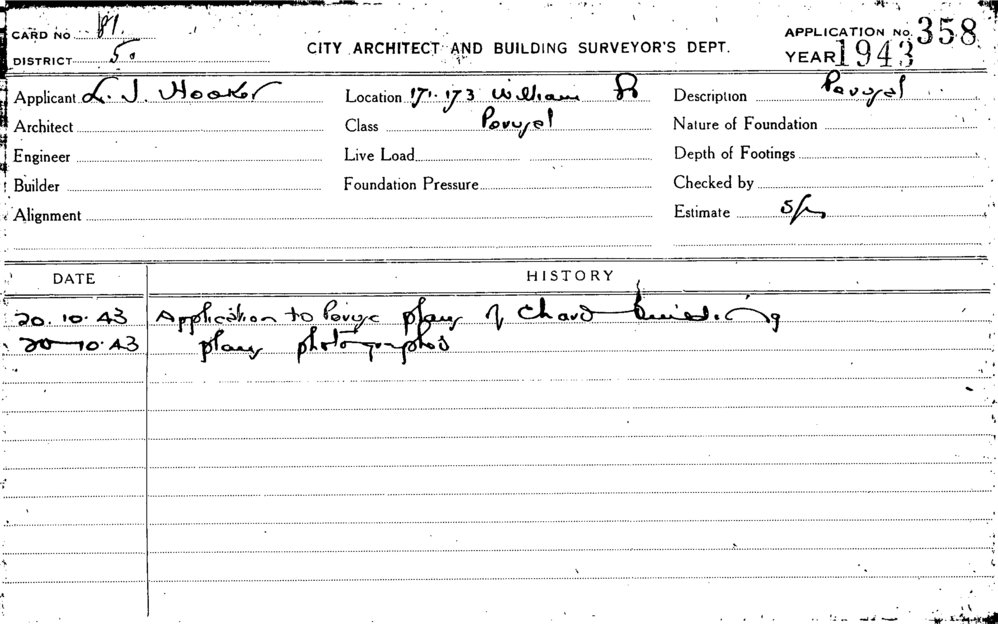 CARD NO P1.
DISTRICT 5.
CITY ARCHITECT AND BUILDING SURVEYOR'S DEPT.
APPLICATION NO. 358
YEAR 1943
Applicant L. J. Hooker
Location 171.173 William St
Description Perusal
Architect
Class Perusal
Nature of Foundation
Engineer
Live Load
Depth of Footings
Builder
Foundation Pressure
Checked by
Alignment
Estimate 5/-
DATE
HISTORY
20.10.43 Application to Peruse plans of Chard Building
20.10.43 plans photographed